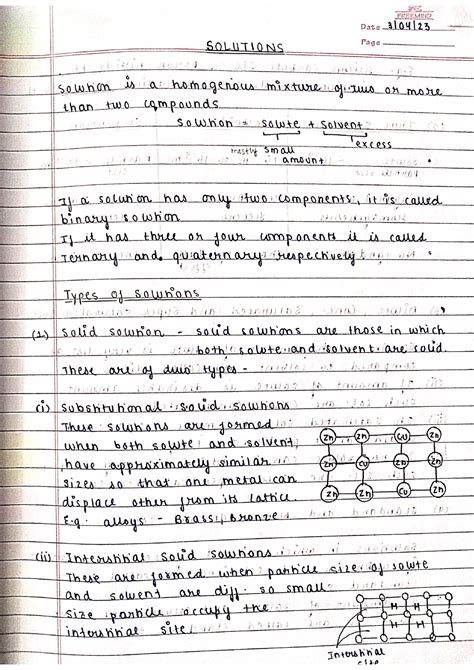 Date 3/04/23
Page
SOLUTIONS
Solution is a homogenous mixture of two or more
than two compounds
Solution = solute + solvent
mostly small amount
excess
If a solution has only two components, it is called
binary solution
If it has three or four components it is called
Ternary and quaternary respectively
Types of Solutions
(1) Solid solution - solid solutions are those in which
both solute and solvent are solid.
These are of two types -
(i) Substitutional solid solutions
These solutions are formed
when both solute and solvent
have approximately similar
sizes so that one metal can
displace other from its lattice.
E.g. alloys - Brass, Bronze
Zn Zn Cu Zn
Zn Cu Zn Zn
Zn Zn Cu Zn
(ii) Interstitial Solid solutions
These are formed when particle size of solute
and solvent are diff. so small
size particle occupy the
interstitial site
H H
H H
Interstitial
site